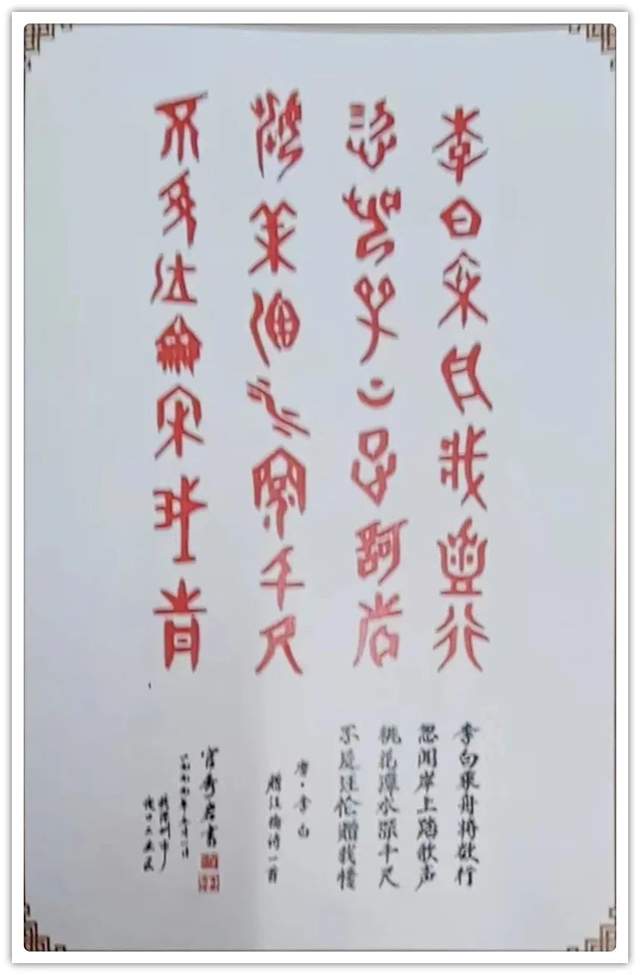 李白乘舟将欲行
忽闻岸上踏歌声
桃花潭水深千尺
不及汪伦我情
李白乘舟将欲行
忽闻岸上踏歌声
桃花潭水深千尺
不及汪伦赠我情
唐·李白
赠汪伦诗一首
书